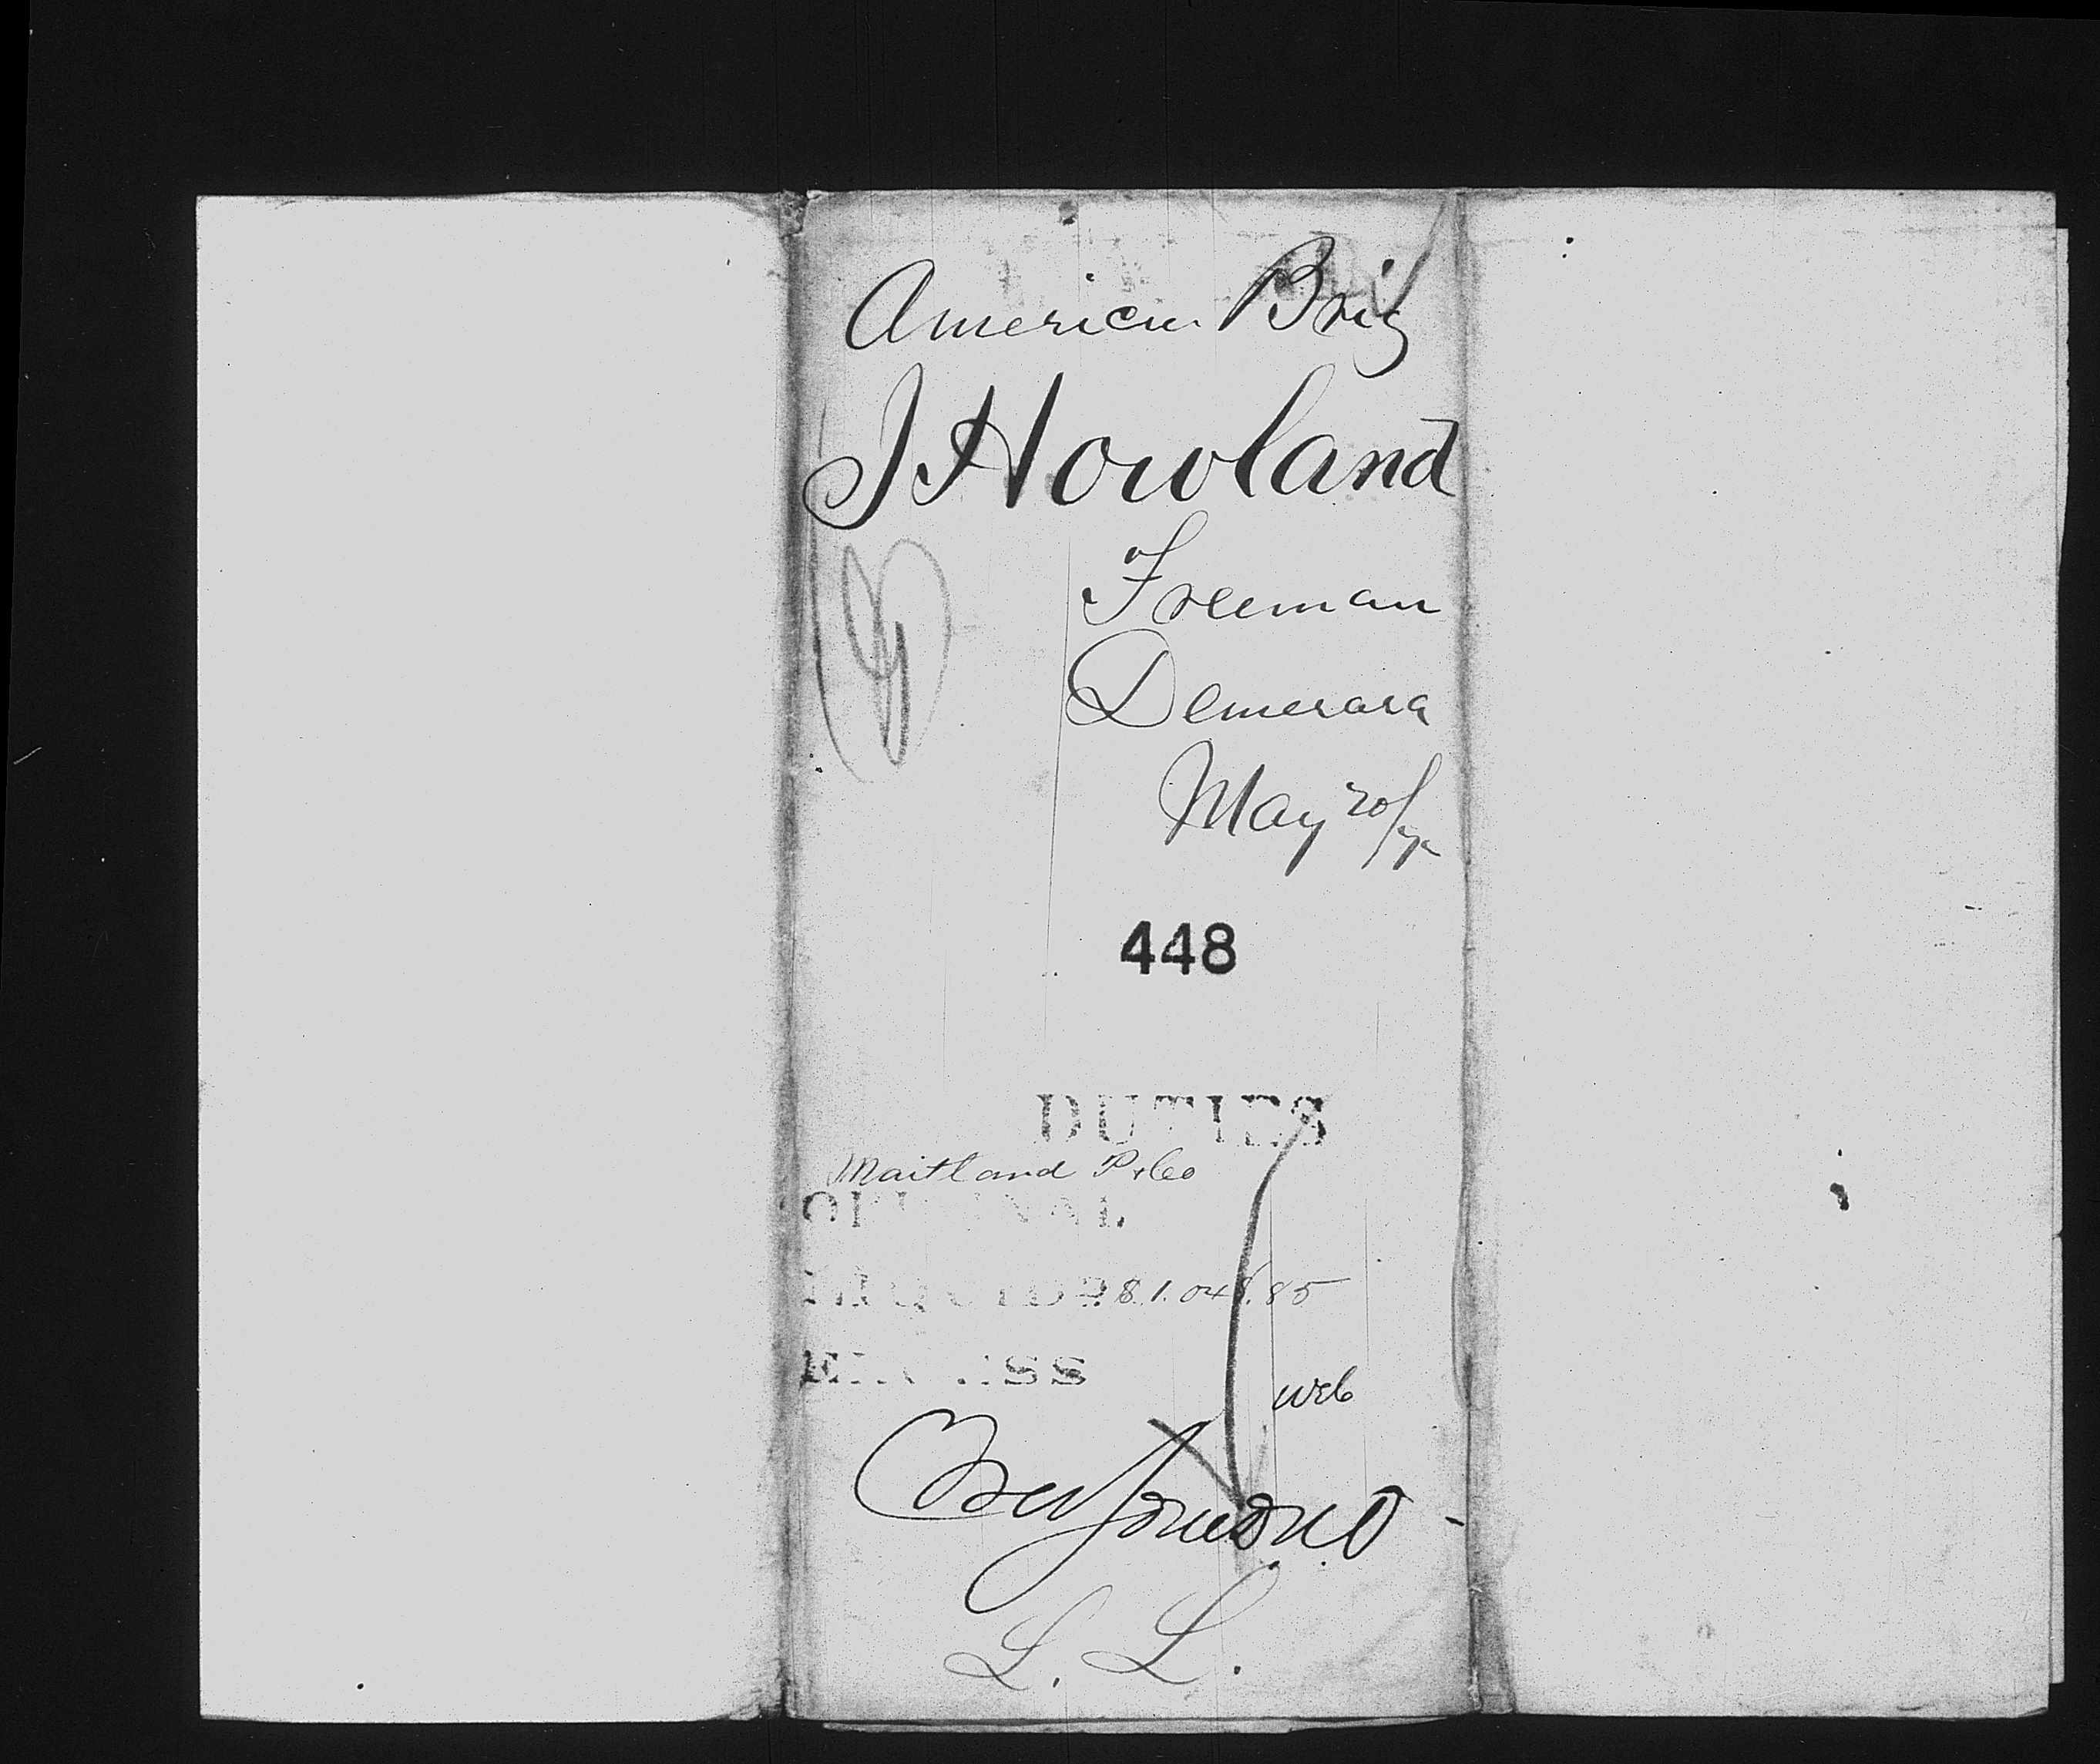 American Brig
J Howland
Freeman
Demerara
May 20/
448
DUTIES
Maitland P & Co
ORIGINAL
LIQUID
EXCESS
L. L.